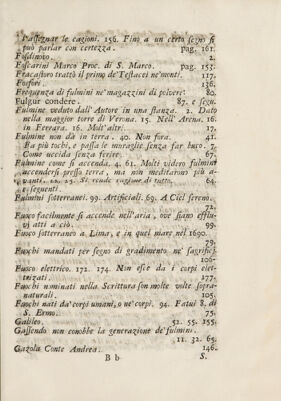 l'assegnar le cagioni. 156. Fino a un certo segno si
può parlar con certezza. pag. 161.
Fosdinovo. 2.
Foscarini Marco Proc. di S. Marco. pag. 153.
Fracastoro trattò il primo de' Testacei ne' monti. 117.
Fosfori. 136.
Frequenza di fulmini ne' magazzini di polvere 80.
Fulgur condere. 87. e segu.
Fulmine veduto dall' Autore in una stanza. 2. Dato
nella maggior torre di Verona. 15. Nell' Arena. 16.
in Ferrara. 16. Molt' altri. 17.
Fulmine non dà in terra. 40. Non fora. 41.
Ba più tochi, e passa le muraglie senza far buco. 7.
Come uccida senza ferire.
Fulmine come si accenda. 4. 61. Molti videro fulmini
accendersi presso terra, ma non meditarono più a-
vanti. 22. 23. Si rende ragione di tutto. 64.
e seguenti.
Fulmini sotterranei. 99. Artificiali. 69. A Ciel sereno.
72.
Fuoco facilmente si accende nell' aria, ove siano efflu-
vj atti a ciò. 99.
Fuoco sotterraneo a Lima, e in quel mare nel 1690.
79.
Fuochi mandati per segno di gradimento ne' sagrifizj
106.
Fuoco elettrico. 172. 174. Non esce da i corpi elet-
trizati. 177.
Fuochi nominati nella Scrittura son molte volte sopra-
naturali. 105.
Fuochi nati da' corpi umani, o ne' corpi. 94. Fatui 8. di
S. Ermo. 75.
Galileo. 52. 55. 155.
Gassendo non conobbe la generazione de' fulmini.
11. 32. 65.
Gazola Conte Andrea. 146.
B b S.